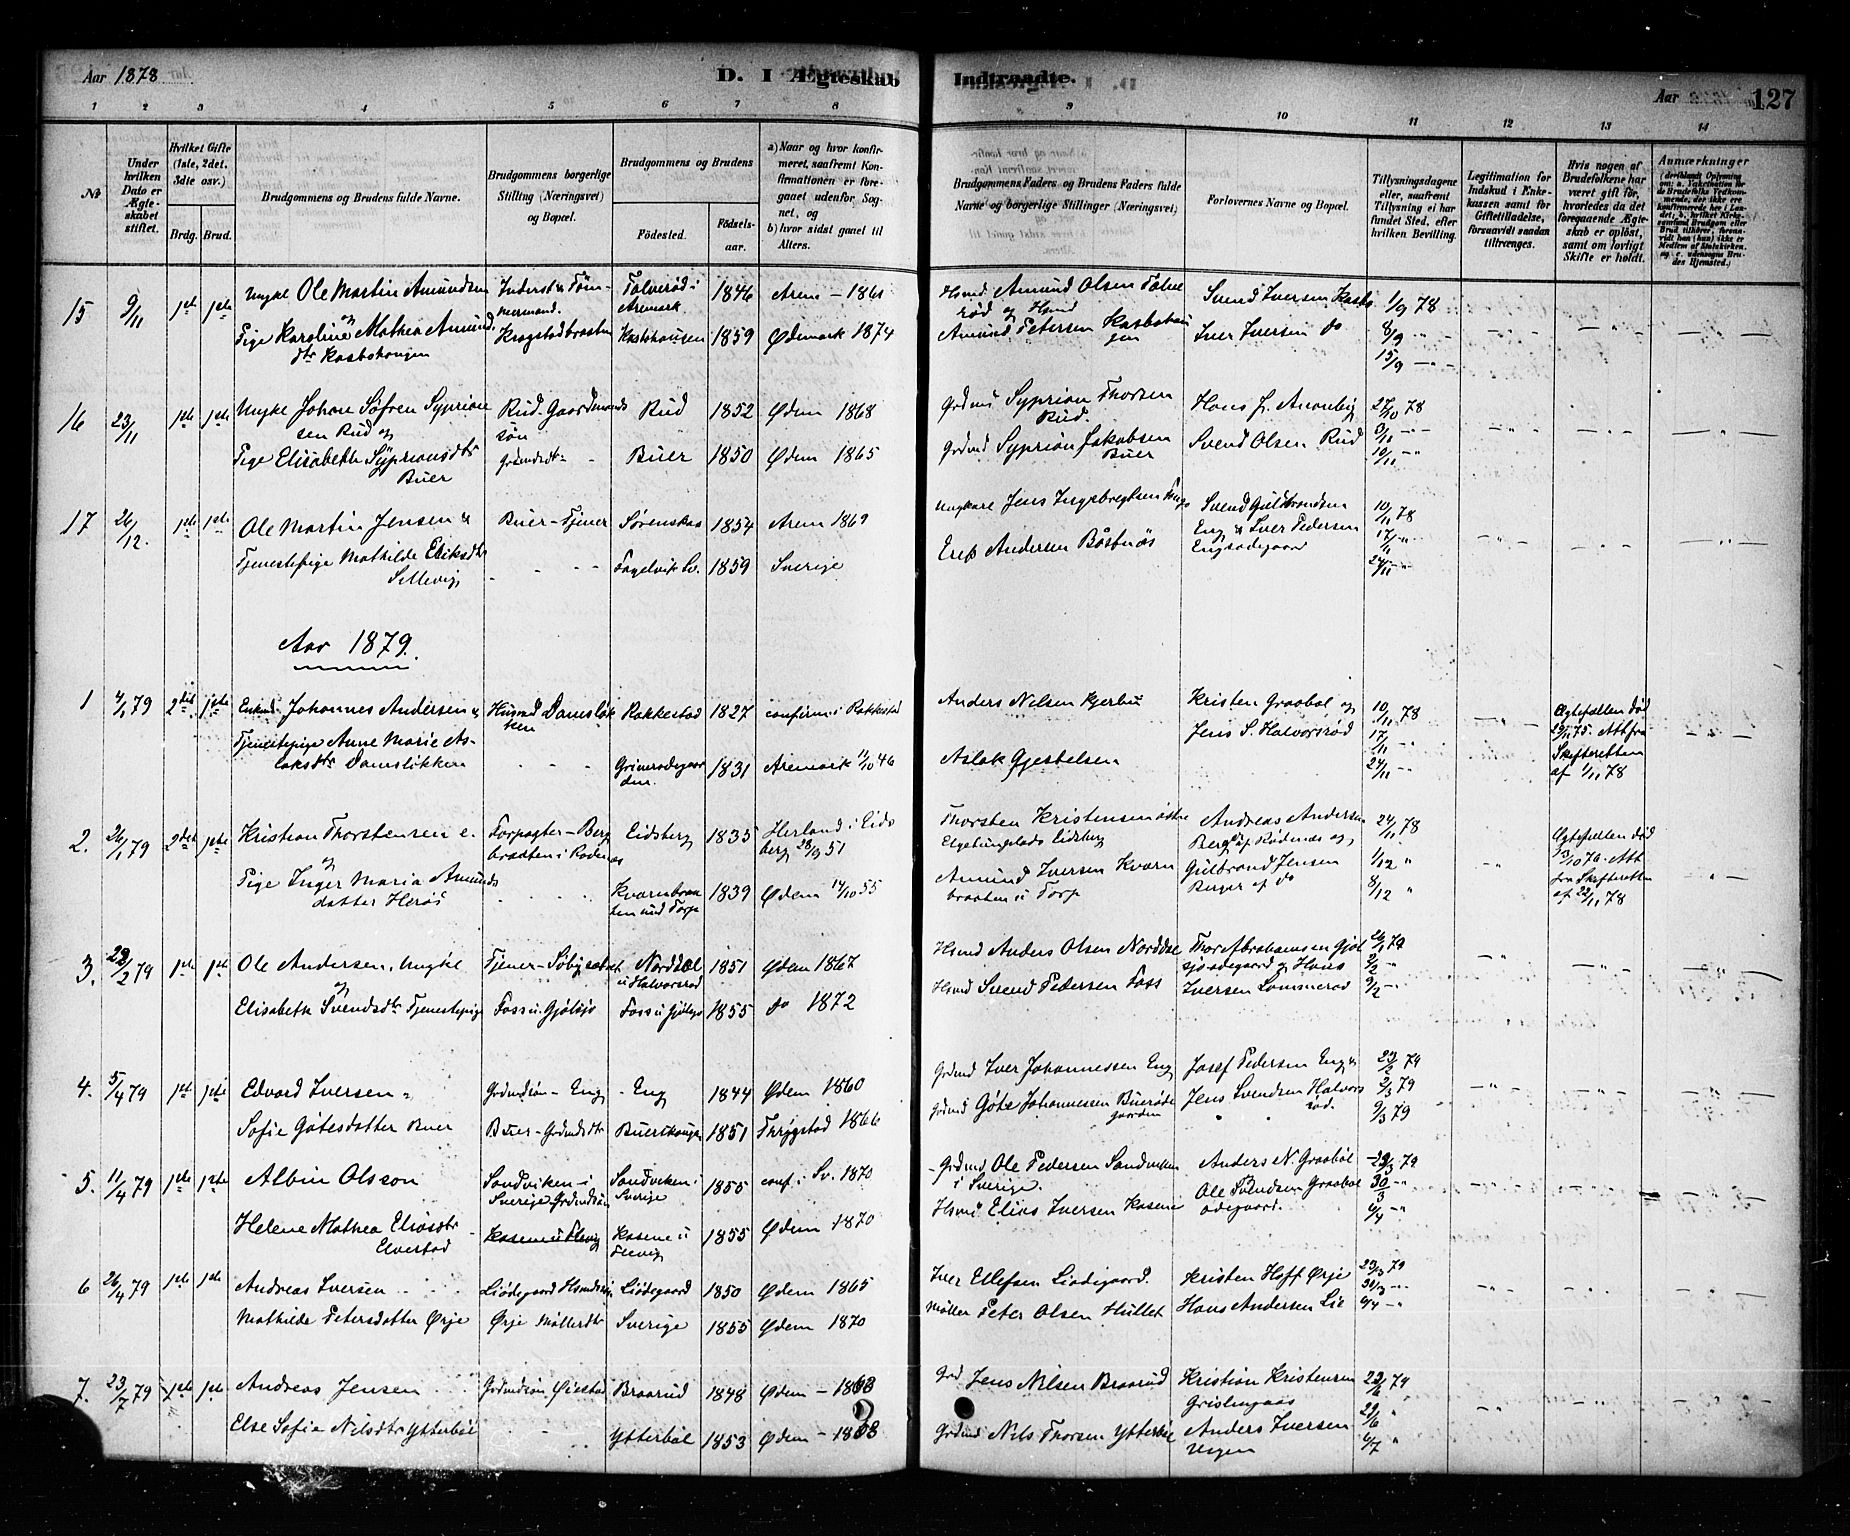 Aar 1878
D. I Ægteskab
Indtraadte.
Aar
127
1 2 3 4 5 6 7 8 9 10 11 12 13 14
No
Under hvilken Dato er Ægteskabet stiftet.
Hvilket Gifte (1ste, 2det, 3die osv.)
Brdg. Brud.
Brudgommens og Brudens fulde Navne.
Brudgommens borgerlige Stilling (Næringsvei) og Bopæl.
Brudgommens og Brudens
Fødested.
Fødselsaar.
a) Naar og hvor konfirmeret, saafremt Konfirmationen er foregaaet udenfor Sognet, og
b) hvor sidst gaaet til Alters.
Brudgommens Faders og Brudens Faders fulde Navne og borgerlige Stillinger (Næringsvei)
Forlovernes Navne og Bopæl.
Tillysningsdagene eller, saafremt Tillysning ei har fundet Sted, efter hvilken Bevilling.
Legitimation for Indskud i Enkekassen samt for Giftetilladelse, forsaavidt saadan tiltrænges.
Hvis nogen af Brudefolkene har været gift før, hvorledes da det foregaaende Ægteskab er opløst, samt om lovligt Skifte er holdt.
Anmærkninger
15 9/11 1ste 1ste Ungke Ole Martin Amundsen
og
Pige Karoline Mathea Amunds
dtr Kasbohaugen
Krogstadbraaten
Tolverød i Aremark 1846 Arem - 1861
1859 Ødemark 1874
Hsmd Amund Olsen Tolverød og Hsmd
Amund Petersen Kasbohaugen
Svend Iversen Kasbo
Iver Iversen do
1/9 78
8/9
15/9
16 23/11 1ste 1ste Ungke Johan Søfren Syprian
sen Rud og
Pige Elisabeth Sypriansdtr
Buer
Rud. Gaardmands
søn
Rud 1852 Ødem 1868
Buer 1850 Ødem 1865
Grdmd Syprian Thorsen
Rud.
Grdmd Syprian Jakobsen
Buer
Svend Olsen Rud
27/10 78
3/11
10/11
17 26/12. 1ste 1ste Ole Martin Jensen &
Tjenestepige Mathilde Eriksdtr
Sillevig
Buer - Tjener
Sørenskas 1854 Arem 1869
Fagelvik Sv. 1859 Sverige
Ungkarl Jens Ingebregtsen
Erik Andersen Båstnäs
Svend Guldbrandsen
Eng & Iver Pedersen
Engsødegaard
10/11 78
17/11
24/11
Aar 1879.
1 4/1 79 2det 1ste Enkmd Johannes Andersen &
Tjenestepige Anne Marie As-
laksdtr Damsløkken
Husmd Damsløk
ken
Rakkestad 1827 confirm i Rakkestad
Grimsødegaar
den. 1831 Aremark 11/10 46
Anders Nilsen Kjerbu
Aslak Gjestelsen
Kristen Graabøl og
Jens S. Halvorsrød
10/11 78
17/11
24/11
Ægtefællen død
29/11 75. Att fra
Skifteretten
af 1/11 78
2. 26/1 79 2det 1ste Kristian Thorstensen e.
og
Pige Inger Maria Amunds
datter Herøs
Forpagter - Berg
braaten i Rødenæs
Eidsberg 1835 Herland i Eids
berg 28/9 51
Kvarnbraa
ten und Torp 1839 Ødem 14/10 55
Thorsten Kristensen
Eidsberg
Amund Iversen Kvarn
braaten u Torp
Andreas Andersen
Berg af Rødenæs og
Gulbrand Jensen
Berger af do
24/11 78
1/12 "
8/12 "
Ægtefællen død
3/10 76. Att
fra Skifteretten
af 22/11 78
3. 22/2 79 1ste 1ste Ole Andersen, Ungke
og
Elisabeth Svendsdtr Tjenestepige
Foss u. Gjølsjø
Norddal
u Halvorsrød 1851 Ødem 1867
Foss u Gjølsjø 1855 do 1872
Hsmd Anders Olsen Norddal
Hsmd Svend Pedersen Foss
Thor Abrahamsen Gjøl
sjøødegaard og Hans
Iversen Lommerød
26/1 79
2/2
9/2
4. 5/4 79 1ste 1ste Edvard Iversen
Sofie Gøtesdatter Buer
Grdmdsøn - Eng
Buer - Grdmdsdtr
Eng 1844 Ødem 1860
Buerskougen 1851 Thrygstad 1866
Grdmd Iver Johannessen Eng
Grdmd Gøte Johannessen Buerøde
gaarden
Josef Pedersen Eng &
Jens Svendsen Halvors
rød.
23/2 79
2/3 79
9/3 79
5. 11/4 79 1ste 1ste Albin Olsson
Helene Mathea Eliasdtr
Elvestad
Sandviken i
Sverige Grdmdsøn
Kasene u Flevig
Sandviken i
Sverige 1855 conf. i Sv. 1870
Kasene u
Flevig 1855 Ødem 1870
Grdmd Ole Pedersen Sandviken
i Sverige.
Hsmd Elias Iversen Kasene
Anders N Graabøl
Ole Svendsen Graabøl
ødegaard.
23/3 79
30/3
6/4
6 26/4 79 1ste 1ste Andreas Iversen
Mathilde Petersdatter Ørje
Liødegaard Hsmdsøn
Ørje Møllerdtr
Liødegaard 1850 Ødem 1865
Sverige 1855 Ødem 1870
Iver Ellefsen Liødegaard.
Møller Peter Olsen Hullet
Kristen Hoff Ørje
Hans Andersen Lie
23/3 79
30/3
6/4
7. 23/7 79 1ste 1ste Andreas Jensen
Else Sofie Nilsdtr Ytterbøl
Grdmdsøn Øiestad
Braarud 1848 Ødem - 1863
Ytterbøl 1853 Ødem - 1868
Grd Jens Nilsen Braarud
Grdmd Nils Thorsen Ytterbøl
Kristian Kristensen
Grislingaas
Anders Iversen
Vegen
22/6 79
29/6
6/7